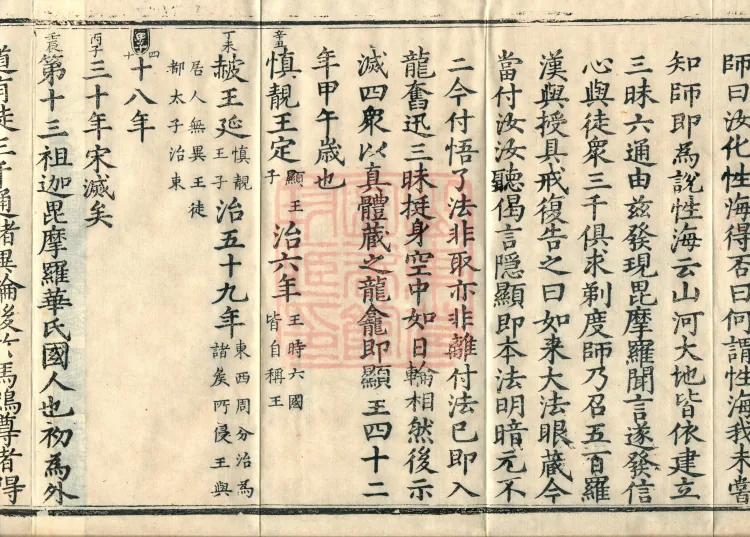 師曰汝化性海得否曰何謂性海我未嘗
知師即為說性海云山河大地皆依建立
三昧六通由兹發現毘摩羅聞言遂發信
心與徒眾三千俱求剃度師乃召五百羅
漢與授具戒復告之曰如来大法眼蔵今
當付汝汝聽偈言隱顯即本法明暗元不
二今付悟了法非取亦非離付法已即入
龍奮迅三昧挺身空中如日輪相然後示
滅四衆以真體蔵之龍龕即顯王四十二
年甲午歳也
辛丑
慎靚王定 顯王子 治六年 王時六國皆自稱王
丁未
赧王延 慎靚王子 治五十九年 東西周分治為諸矦所侵王與居人無異王徒都太子治東
甲子 四十
十八年
丙子
三十年宋滅矣
壬辰
第十三祖迦毘摩羅華氏國人也初為外
道有徒三千通者異論後於馬鳴尊者得